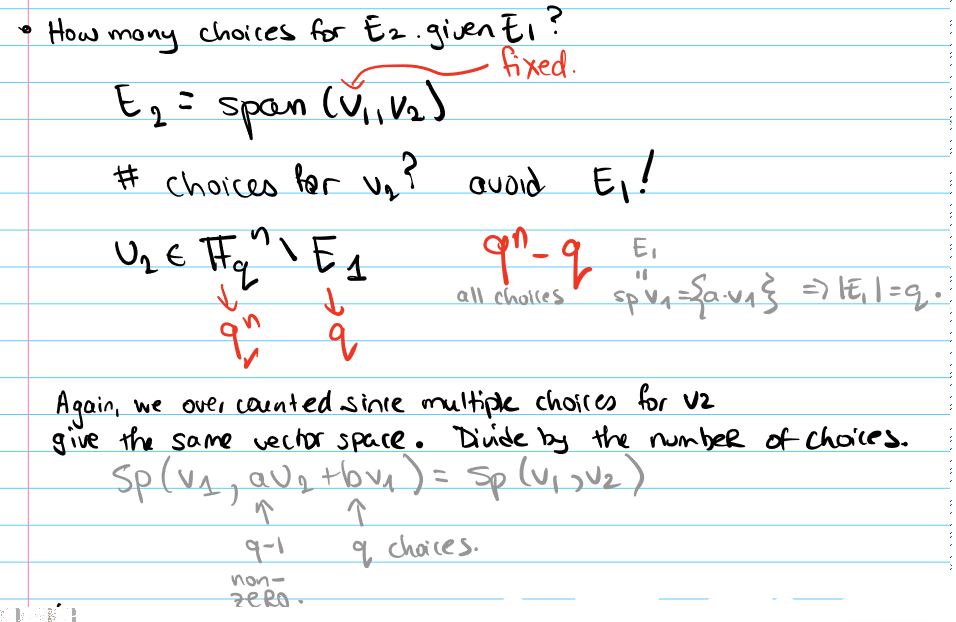 • How many choices for E₂ . given E₁ ?
fixed.
E₂ = span (v₁, v₂)
# choices for v₂ ? avoid E₁ !
v₂ ∈ 𝔽_qⁿ \ E₁ qⁿ - q
E₁
all choices
" 
sp v₁ = {a·v₁} ⇒ |E₁| = q .
↓ ↓
qⁿ q
Again, we over counted since multiple choices for v2
give the same vector space. Divide by the number of choices.
Sp (v₁, av₂ + bv₁) = Sp (v₁, v₂)
↑ ↑
q-1 q choices.
non-
zero.